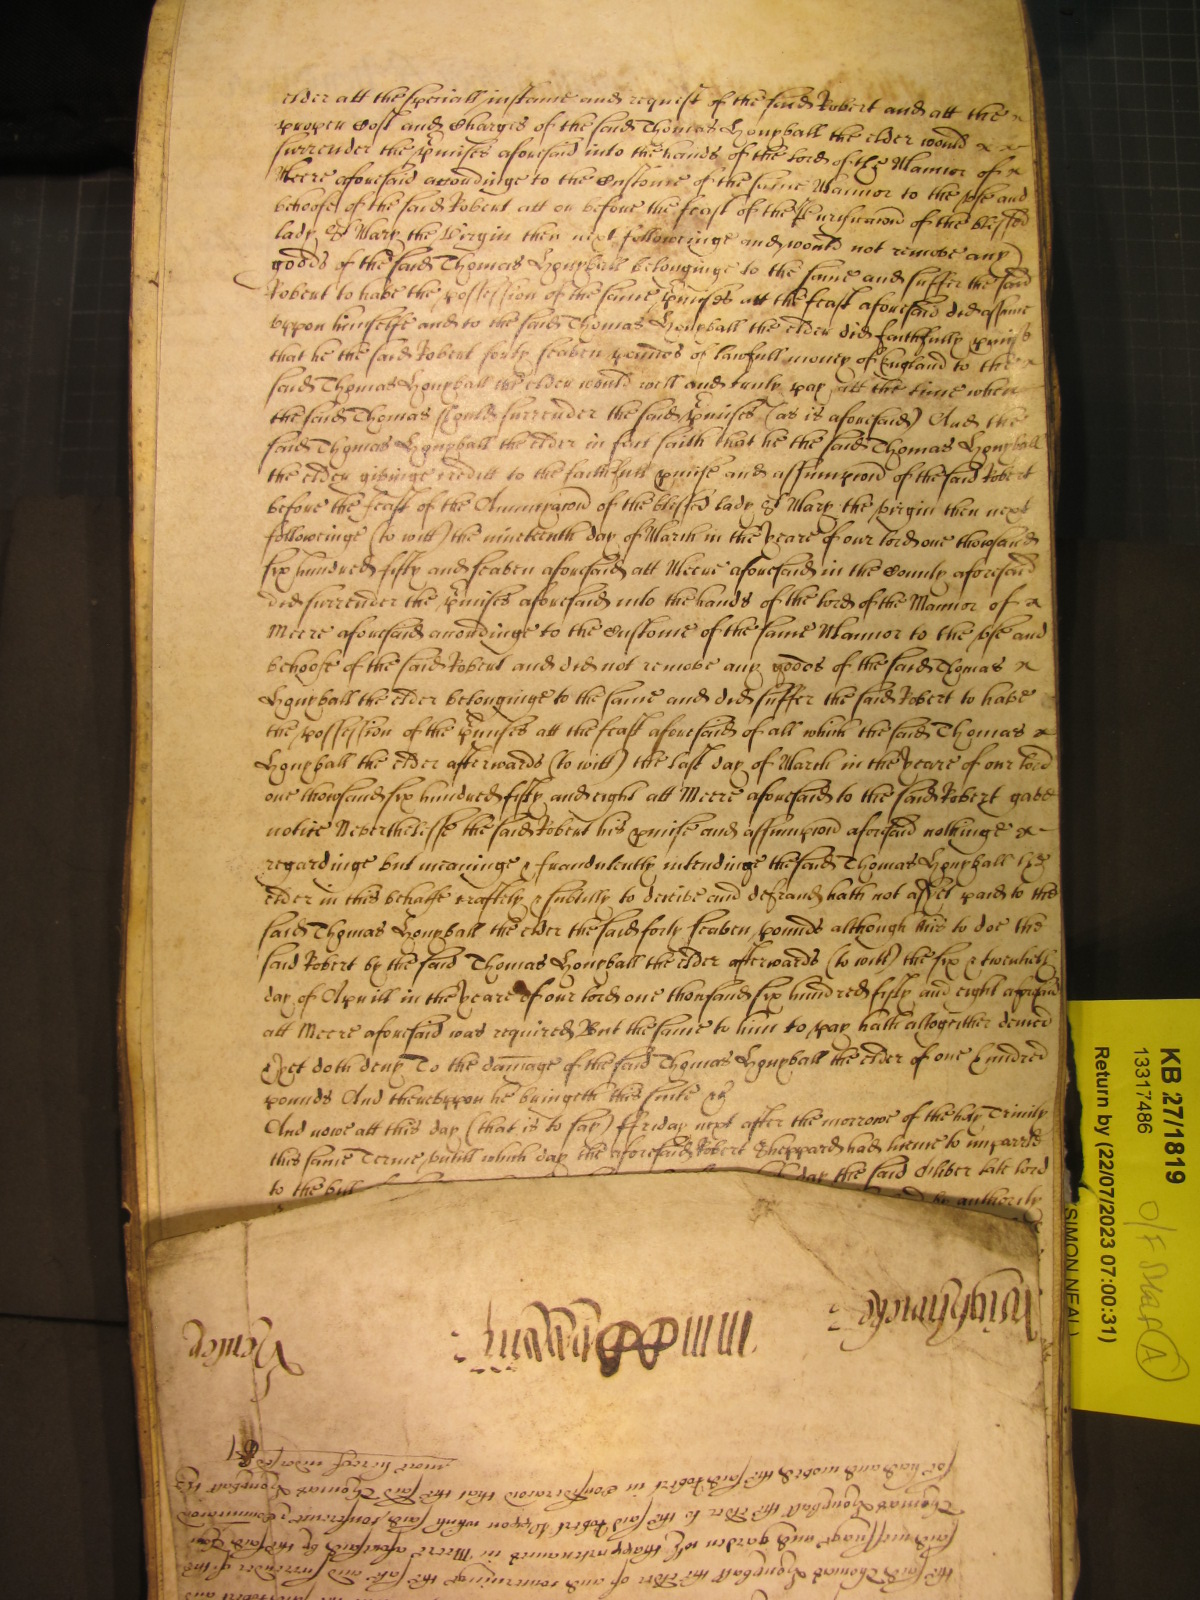 elder att the speciall instance and request of the said Robert and att the
proper Cost and Charges of the said Thomas Honyball the elder would
surrender the p'mises aforesaid into the hands of the lord of the Mannor of
Meere aforesaid accordinge to the Custome of the same Mannor to the vse and
behoofe of the said Robert att or before the feast of the Purificac'on of the blessed
lady St Mary the Virgin then next followeinge and would not remove any
goods of the said Thomas Honyball belonginge to the same and suffer the said
Robert to have the possession of the same p'mises att the feast aforesaid did assume
vppon himselfe and to the said Thomas Honyball the elder did faithfully p'mise
that he the said Robert forty seaven pounds of lawfull money of England to the
said Thomas Honyball the elder would well and truly pay att the time when
the said Thomas should surrender the said p'mises (as is aforesaid) And the
said Thomas Honyball the elder in fact saith that he the said Thomas Honyball
the elder giveinge creditt to the faithfull p'mise and assumpc'on of the said Robert
before the feast of the Annunciac'on of the blessed lady St Mary the virgin then next
followeinge (to witt) the nineteenth day of March in the yeare of our lord one thowsand
six hundred fifty and seaven aforesaid att Meere aforesaid in the County aforesaid
did surrender the p'mises aforesaid into the hands of the lord of the Mannor of
Meere aforesaid accordinge to the Custome of the same Mannor to the vse and
behoofe of the said Robert and did not remove any goods of the said Thomas
Honyball the elder belonginge to the same and did suffer the said Robert to have
the possession of the p'mises att the feast aforesaid of all which the said Thomas
Honyball the elder afterwards (to witt) the last day of March in the yeare of our lord
one thowsand six hundred fifty and eight att Meere aforesaid to the said Robert gave
notice Neverthelesse the said Robert his p'mise and assumpc'on aforesaid nothinge
regardinge but meaninge & fraudulently intendinge the said Thomas Honyball the
elder in this behalfe craftely & subtilly to deceive and defraud hath not as yet paid to the
said Thomas Honyball the elder the said forty seaven pounds although this to doe the
said Robert by the said Thomas Honyball the elder afterwards (to witt) the six & twentieth
day of Aprill in the yeare of our lord one thousand six hundred fifty and eight aforesaid
att Meere aforesaid was required But the same to him to pay hath altogeither denied
& yet doth deny To the damage of the said Thomas Honyball the elder of one hundred
pounds And therevppon he bringeth this suite &c
And nowe att this day (that is to say) ffriday next after the morrowe of the holy Trinity
this same Terme vntill which day the aforesaid Robert Sheppard had licence to imparle
to the bill day the said Oliver late lord
by authority
KB 27/1819
13317486
Return by (22/07/2023 07:00:31)
SIMON NEAL
O/F Map A
Wightwicke
Venter
more hereof indorsed
for had and moved the said Robert in Considerac'on that the said Thomas Honyball the
Thomas Honyball the elder to the said Robert Vppon which said conference & Communicac'on
said messuage and garden with thappurtenances in Meere aforesaid by the said
the said Thomas Honyball the elder of and concerninge the sale and surrender of the